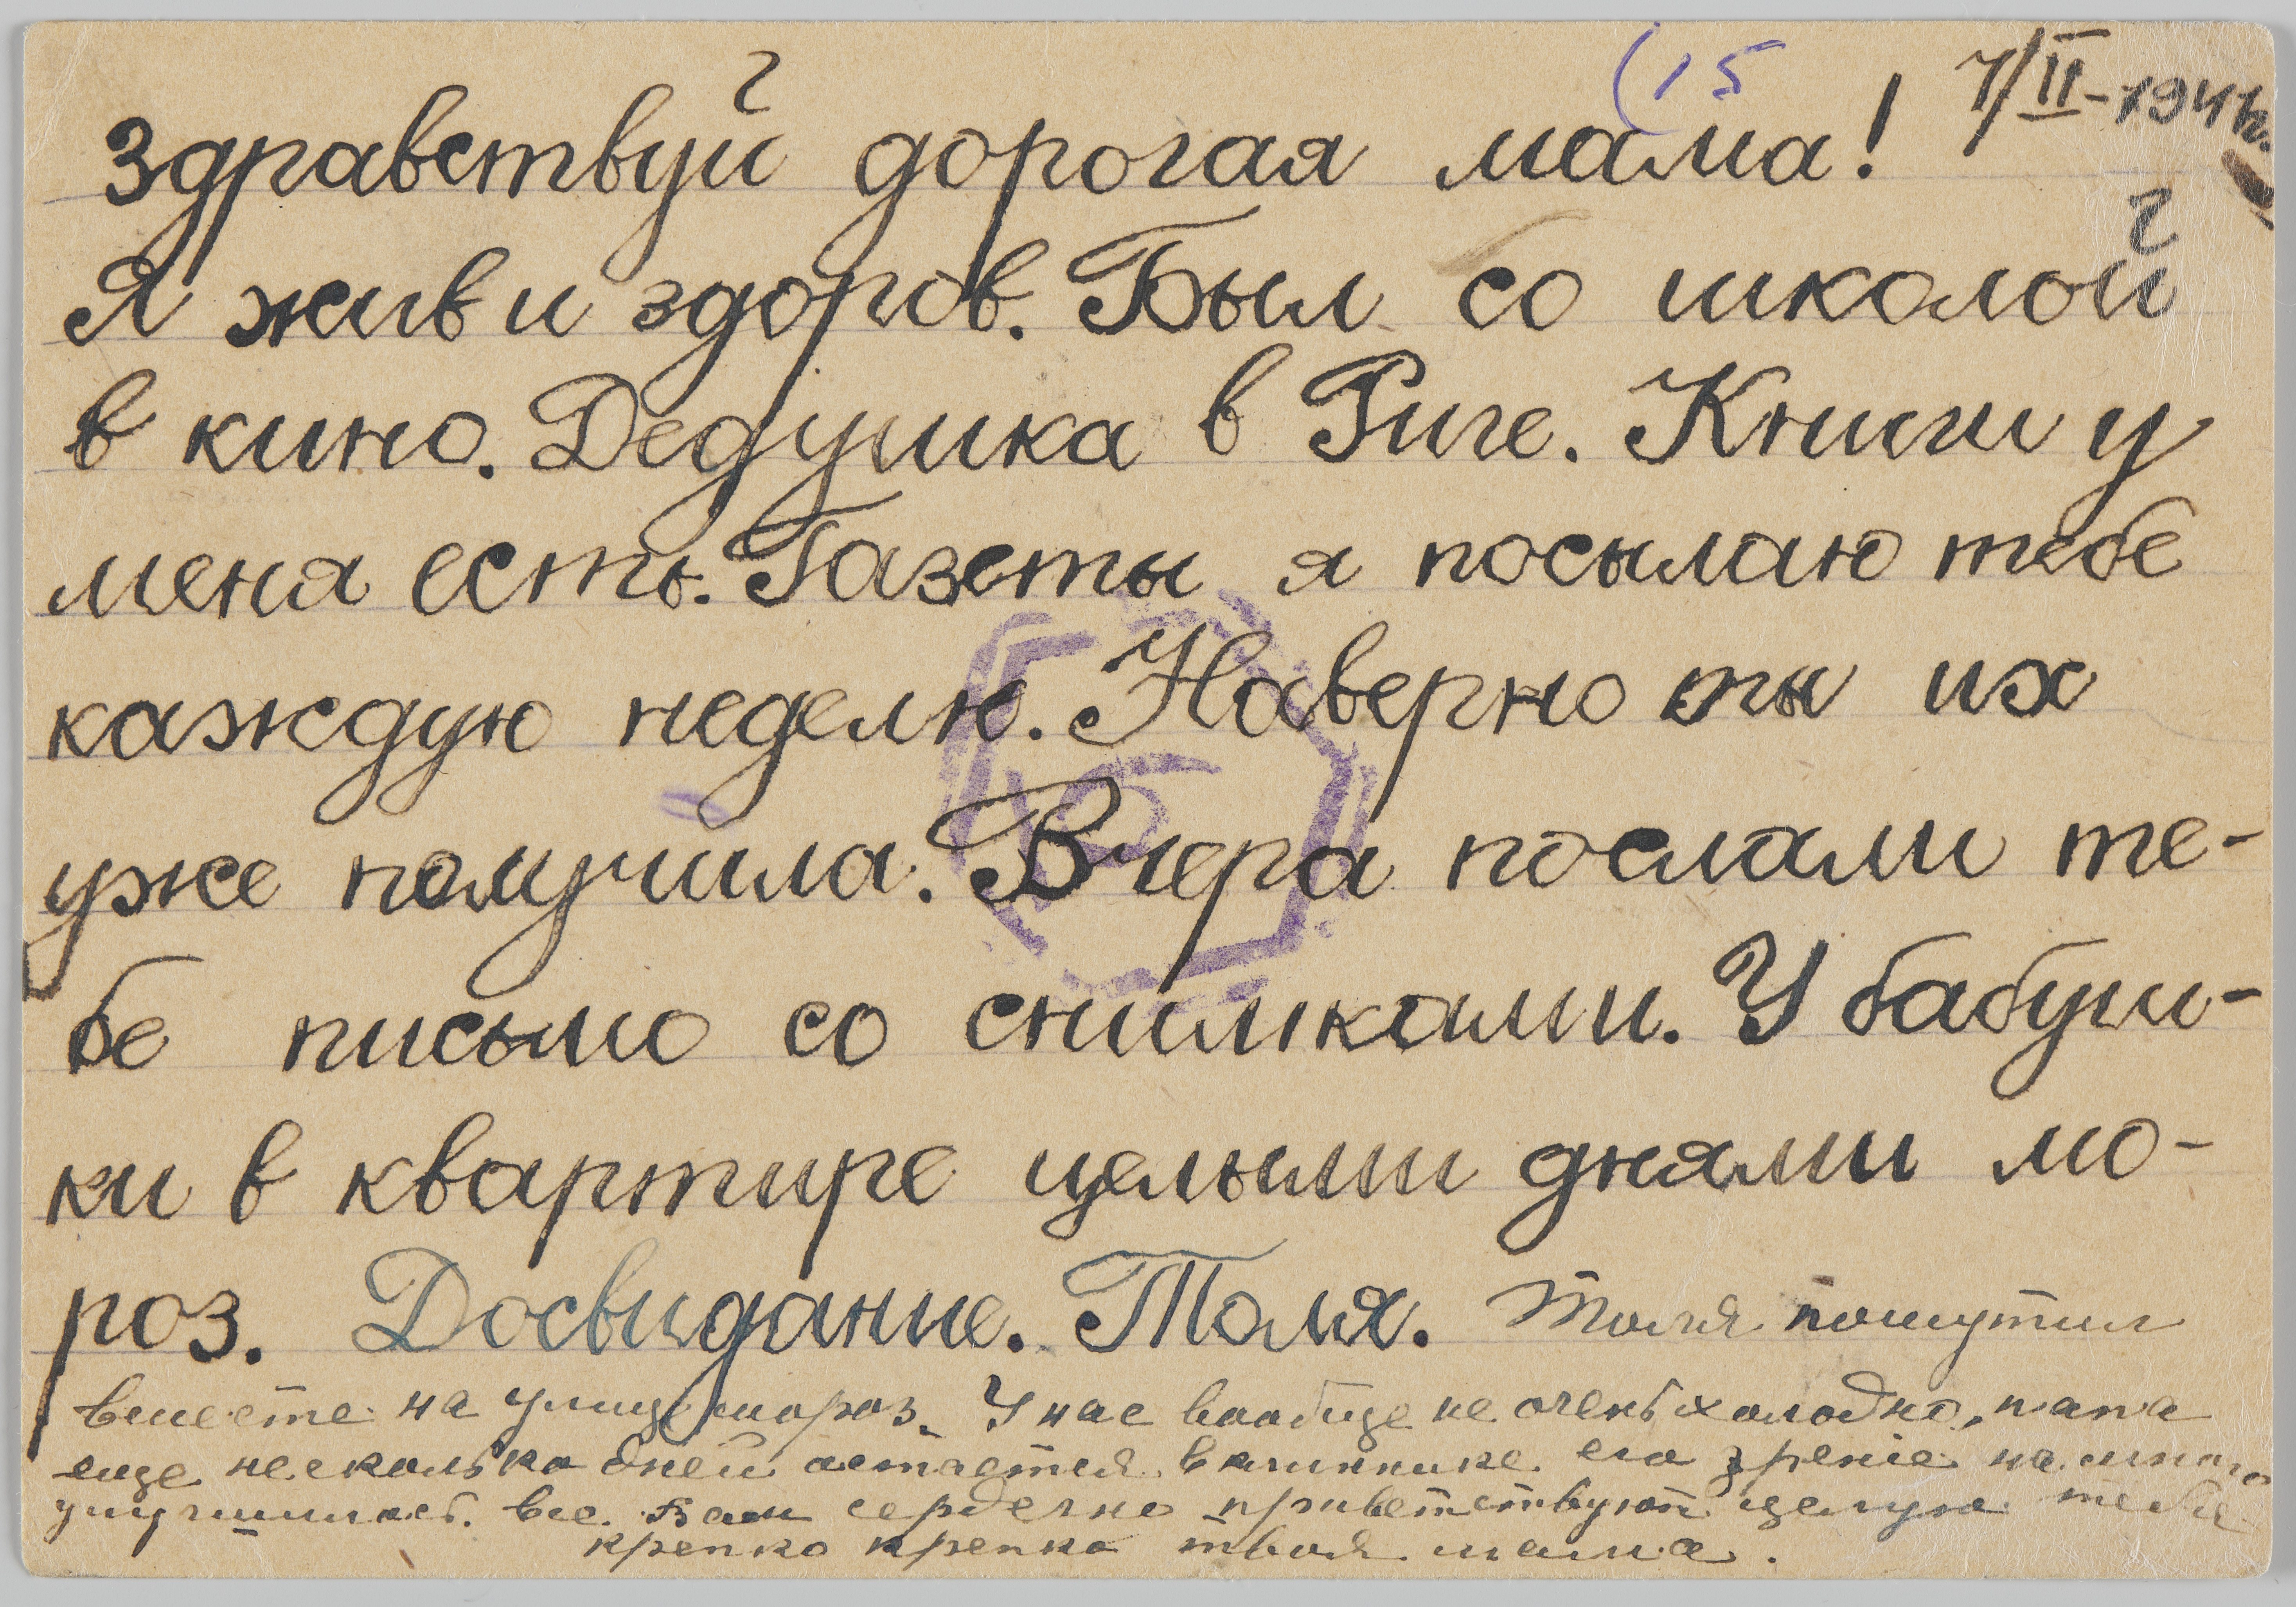 (15
7/II-194
Здравствуй дорогая мама!
Я жив и здоров. Был со школой
в кино. Дедушка в Риге. Книги у
меня есть. Газеты я посылаю тебе
каждую неделю. Наверно ты их
уже получила. Вчера послали те-
бе письмо со снимками. У бабуш-
ки в квартире целыми днями мо-
роз. Досвидание. Толя. Толя пошутил
вместе на улице мороз. У нас вообще не очень холодно, папа
еще несколько дней остается в клинике его зрение на много
улучшилось. Все Вам сердечно приветствуют целую тебя
крепко крепко твоя мама.